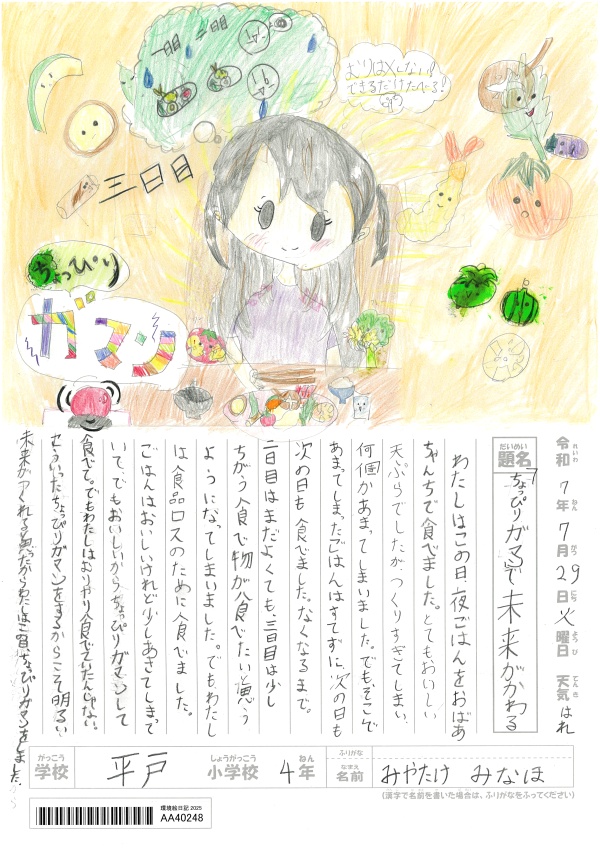 一日目
二日目
三日目
むりはしない!
できるだけたべる!
ちょっぴり
ガマン
令和7年7月29日火曜日 天気 はれ
れいわ ねん がつ にち ようび てんき
だいめい
題名
「ちょっぴりガマンで未来がかわる
わたしはこの日、夜ごはんをおばあ
ちゃんちで食べました。とてもおいしい
天ぷらでしたが、つくりすぎてしまい、
何個かあまってしまいました。でもそこで
あまってしまったごはんはすてずに、次の日も
次の日も食べました。なくなるまで。
二日目はまだよくても、三日目は少し
ちがう食べ物が食べたいと思う
ようになってしまいました。でもわたし
は食品ロスのために食べました。
ごはんはおいしいけれど少しあきてしまって
いて、でもおいしいからちょっぴりガマンして
食べて。でもわたしはむりやり食べていたんじゃない。
そういったちょっぴりガマンをするからこそ明るい
未来がつくれると思ったからわたしは三日、ちょっぴりガマンをしました。
がっこう
学校
平戸
しょうがっこう
小学校
4年
ねん
ふりがな
なまえ
名前
みやたけ みなほ
(漢字で名前を書いた場合は、ふりがなをふってください)
環境絵日記 2025
AA40248